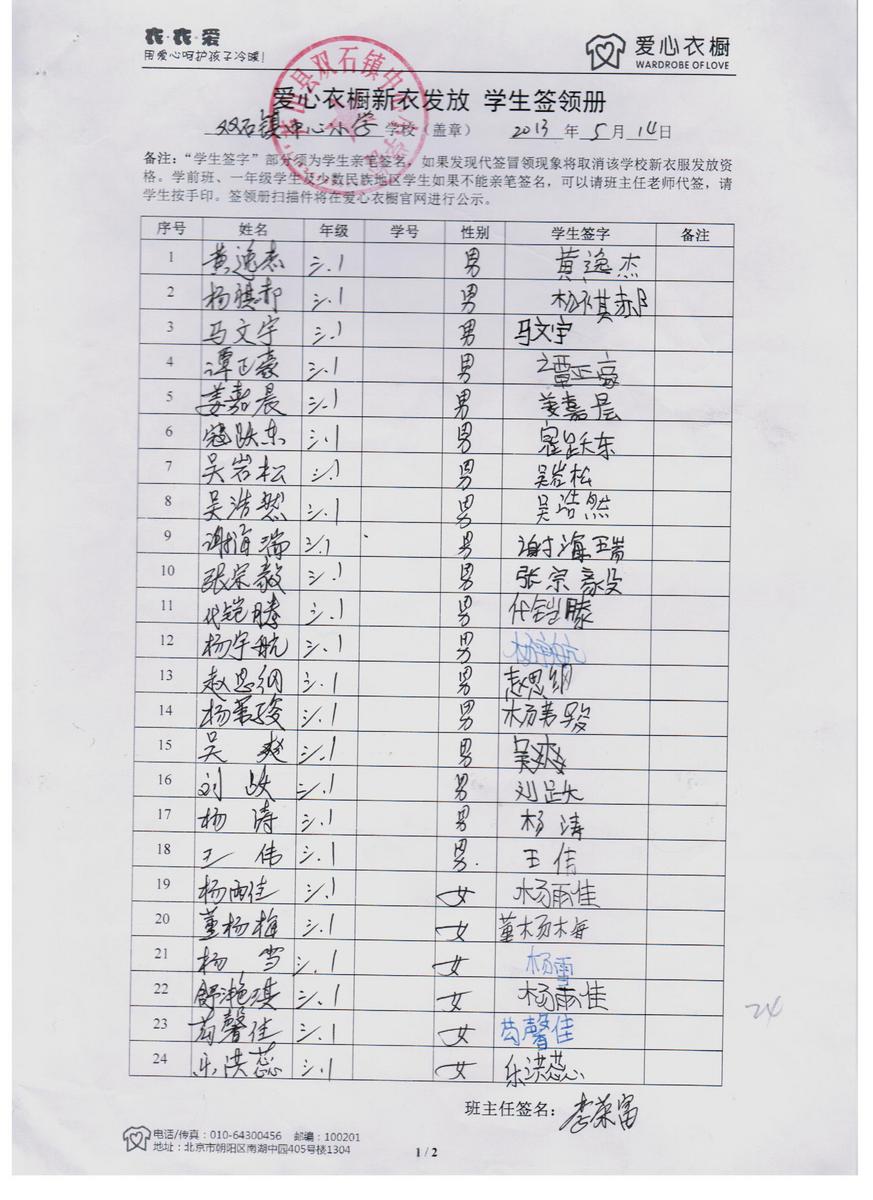 衣·衣·爱
用爱心呵护孩子冷暖!
爱心衣橱
WARDROBE OF LOVE
爱心衣橱新衣发放 学生签领册
双石镇中心小学 学校（盖章） 2013 年 5 月 14 日
备注：“学生签字”部分须为学生亲笔签名，如果发现代签冒领现象将取消该学校新衣服发放资
格。学前班、一年级学生及少数民族地区学生如果不能亲笔签名，可以请班主任老师代签，请
学生按手印。签领册扫描件将在爱心衣橱官网进行公示。
序号 姓名 年级 学号 性别 学生签字 备注
1 黄逸杰 三.1 男 黄逸杰
2 杨祺郝 三.1 男 杨祺郝
3 马文宇 三.1 男 马文宇
4 谭正豪 三.1 男 谭正豪
5 姜嘉晨 三.1 男 姜嘉晨
6 寇跃东 三.1 男 寇跃东
7 吴岩松 三.1 男 吴岩松
8 吴浩然 三.1 男 吴浩然
9 谢海瑞 三.1 男 谢海瑞
10 张宗毅 三.1 男 张宗毅
11 代铠滕 三.1 男 代铠滕
12 杨宇航 三.1 男 杨宇航
13 赵思纲 三.1 男 赵思纲
14 杨第骏 三.1 男 杨第骏
15 吴爽 三.1 男 吴爽
16 刘跃 三.1 男 刘跃
17 杨涛 三.1 男 杨涛
18 王伟 三.1 男 王伟
19 杨雨佳 三.1 女 杨雨佳
20 董杨梅 三.1 女 董杨梅
21 杨雪 三.1 女 杨雪
22 舒滟琪 三.1 女 杨雨佳
23 苟馨佳 三.1 女 苟馨佳
24 乐洪蕊 三.1 女 乐洪蕊
24
班主任签名：李荣富
电话/传真：010-64300456 邮编：100201
地址：北京市朝阳区南湖中园405号楼1304
1 / 2